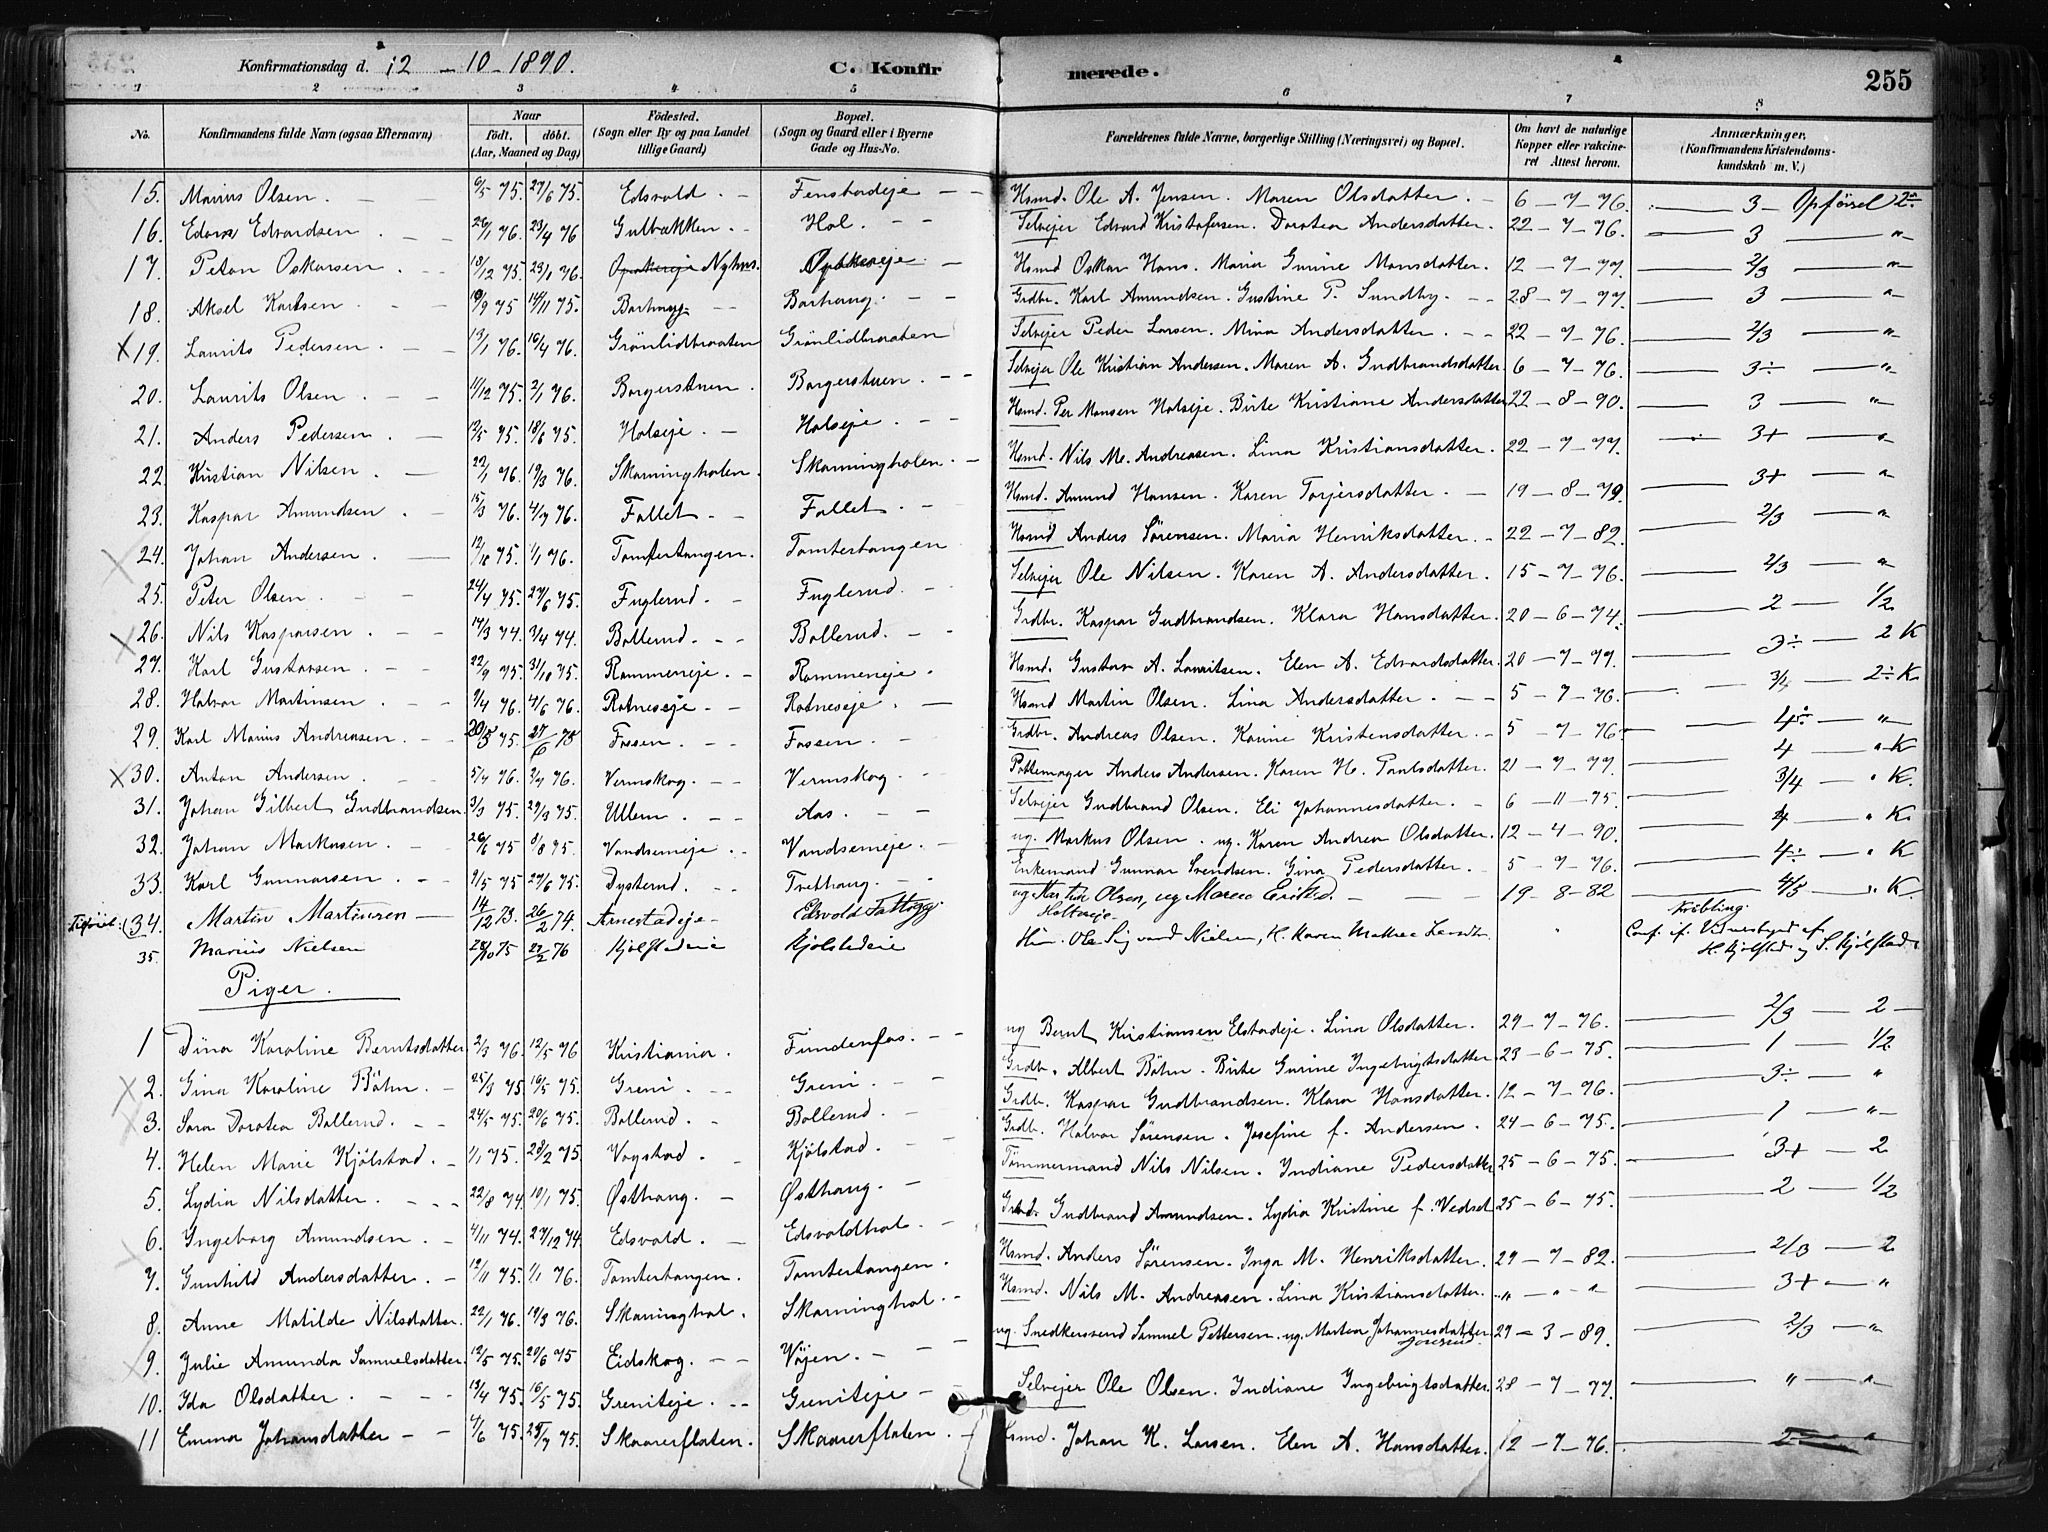 Konfirmationsdag d. 12 - 10 - 1890. C. Konfirmerede. 255
1 2 3 4 5 6 7 8
No. Konfirmandens fulde Navn (ogsaa Efternavn) Naar födt. döbt. (Aar, Maaned og Dag) Födested. (Sogn eller By og paa Landet tillige Gaard) Bopæl. (Sogn og Gaard eller i Byerne Gade og Hus-No. Forældrenes fulde Navne, borgerlige Stilling (Næringsvei) og Bopæl. Om havt de naturlige Kopper eller vakcineret Attest herom. Anmærkninger, (Konfirmandens Kristendomskundskab m. V.)
15. Marius Olsen. 6/5 75. 27/6 75. Edsvold Fenstadeje Hsmd. Ole A. Jensen. Maren Olsdatter. 6-7-76. 3 - Opførsel 2
16. Edvardsen 26/1 76. 23/4 76 Gulbækken Hol. Selvejer Edvard Kristofersen. Dorotea Andersdatter. 22-7-76. 3 "
17. Petan Oskarsen 13/12 75. 23/1 76. Nyhus. Hsmd Oskar Hans. Maria Gurine Mansdatter. 12-7-77. 2/3 "
18. Aksel Karlsen 19/9 75 14/11 75. Barhaug Barhaug. Grdbr. Karl Amundsen. Gustine P. Sundby. 28-7-77. 3 "
x 19. Laurits Pedersen. 13/1 76. 16/4 76. Grönlidbraaten Grönlidbraaten Selvejer Peder Larsen. Mina Andersdatter. 22-7-76. 2/3 "
20. Laurits Olsen 11/12 75. 2/1 76. Borgerstuen. Borgerstuen. Selvejer Ole Kristian Andersen. Maren A. Gudbrandsdatter. 6-7-76. 3÷ "
21. Anders Pedersen 13/5 75. 18/6 75. Holseje. Holseje. Hsmd. Per Monsen Holseje. Birte Kristiane Andersdatter 22-8-90. 3 "
22. Kristian Nilsen. 22/1 76. 19/3 76. Skarningholen. Skarningholen. Hsmd. Nils M. Andreasen. Lina Kristiansdatter. 22-7-77. 3+ "
23. Kaspar Amundsen 15/3 76. 4/7 76. Fallet Fallet. Hsmd. Amund Hansen. Karen Torjersdatter. 19-8-79. 3+ "
24. Johan Andersen. 12/10 75. 1/1 76. Tomtertangen. Tomtertangen Hsmd Anders Sörensen. Maria Henriksdatter. 22-7-82. 2/3 "
25. Peter Olsen 24/4 75. 27/6 75. Fuglerud. Fuglerud. Selvejer Ole Nilsen. Karen A. Andersdatter. 15-7-76. 2/3 "
x 26. Nils Kasparsen 14/3 74. 3/4 74. Bollerud. Bollerud. Grdbr. Kaspar Gudbrandsen. Klara Hansdatter. 20-6-74. 2 1/2
27. Karl Gustavsen 22/9 75. 31/10 75. Rommeneje. Rommeneje. Hsmd. Gustav A. Lauritsen. Elen A. Edvardsdatter. 20-7-77. 3÷ 2 K
28. Halvor Martinsen 9/4 76. 4/6 76. Rotneseje. Rotneseje. Hsmd Martin Olsen. Lina Andersdatter. 5-7-76. 3/4 2÷ K.
29. Karl Marius Andreasen. 20/5 75. 27/6 75 Fossen. Fossen. Grdbr. Andreas Olsen. Karine Kristensdatter. 5-7-76. 4÷ "
x 30. Anton Andersen 5/4 76. 2/7 76. Vermskog. Vermskog. Pottemager Anders Andersen. Karen H. Paulsdatter. 21-7-77. 4 " K
31. Johan Gilbert Gudbrandsen 3/3 75. 29/3 75. Ullern. Aas. Selvejer Gudbrand Olsen. Eli Johannesdatter. 6-11-75. 3/4 " K.
32. Johan Markusen. 26/6 75 8/8 75. Vandsemeje Vandsemeje. ug. Markus Olsen. ug. Karen Andrea Olsdatter. 12-4-90. 4 " K.
33. Karl Gunnarsen. 9/5 75 27/6 75. Dysterud. Trethaug. Enkemand Gunnar Svendsen. Gina Pedersdatter. 5-7-76. 4÷ " K
34. Martin Martinsen 14/12 73. 26/2 74. Arnestadeje Edsvold Fattigg. ug Martin Olsen, ug Maren Eriksd. Holteeje. 19-8-82 4/5 " K. Krøbling.
35. Marius Nielsen 28/10 75 27/2 76 Kjølstadeie Kjølstadeie Hsm. Ole Sigvard Nielsen, K. Karen Mathea " Conf. if. Vidnesbyrd af H. Kjølstad og S. Kjølstad.
Piger.
1 Dina Karoline Berntsdatter 2/3 76. 12/5 76 Kristiania. Fundenfos. ug Bernt Kristiansen Elstadeje. Lina Olsdatter. 29-7-76. 2/3 2
x 2. Gina Karoline Böhn. 25/3 75. 16/5 75. Greni. Greni. Grdb. Albert Böhn. Birte Gurine Ingebrigtsdatter. 23-6-75. 1 1/2
3. Sara Dorotea Bollerud. 24/5 75. 20/6 75. Bollerud Bollerud. Grdb. Kaspar Gudbrandsen. Klara Hansdatter. 12-7-76. 3÷ "
4. Helen Marie Kjölstad. 1/1 75. 28/2 75. Vogstad Kjölstad. Grdb. Halvor Sörensen. Josefine f. Andersen. 24-6-75. 1 "
5. Lydia Nilsdatter. 22/8 74. 10/1 75. Østhaug. Østhaug. Tömmermand Nils Nilsen. Indiane Pedersdatter 25-6-75. 3+ 2
6. Ingeborg Amundsen. 4/11 74. 27/12 74. Edsvold. Edsvoldhol. Gudbrand Amundsen. Lydia Kristine f. Vedset 25-6-75. 2 1/2
7. Gunhild Andersdatter. 12/11 75. 1/1 76. Tomtertangen. Tomtertangen. Hsmd. Anders Sörensen. Inga M. Henriksdatter. 29-7-82. 2/3 2
8. Anne Matilde Nilsdatter. 22/1 76. 19/3 76. Skarninghol. Skarninghol. Hsmd. Nils M. Andreasen. Lina Kristiansdatter. " " " 3+ "
9. Julie Amunda Samuelsdatter. 12/5 75. 20/6 75 Eidskog. Vöjen. ug. Snedkersvend Samuel Pettersen. ug. Martea Johannesdatter 29-3-89. 2/3 "
10. Ida Olsdatter. 13/4 75. 16/5 75. Greniteje. Greniteje Selvejer Ole Olsen. Indiane Ingebrigtsdatter. 28-7-77. " "
11 Emma Johansdatter 4/6 75. 25/7 75. Skaarerflaten. Skaarerflaten. Hsmd. Johan K. Larsen. Elen A. Hansdatter. 12-7-76. 2 "